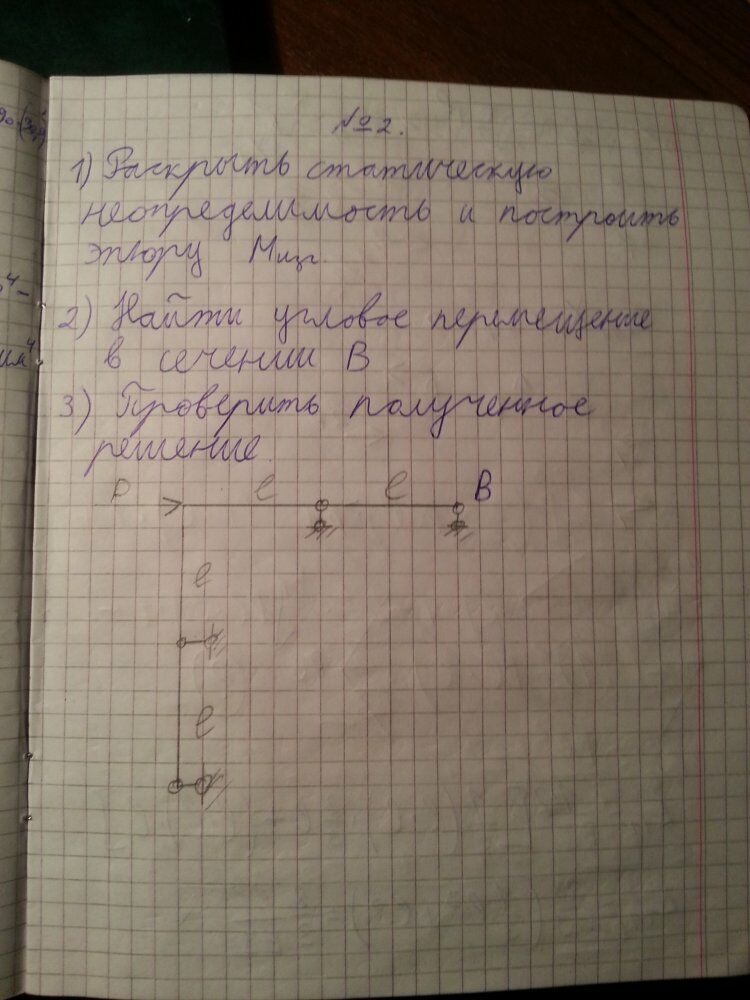 № 2.
1) Раскрыть статическую
неопределимость и построить
эпюру Mизг.
2) Найти угловое перемещение
в сечении В
3) Проверить полученное
решение.
P l l B
l
l